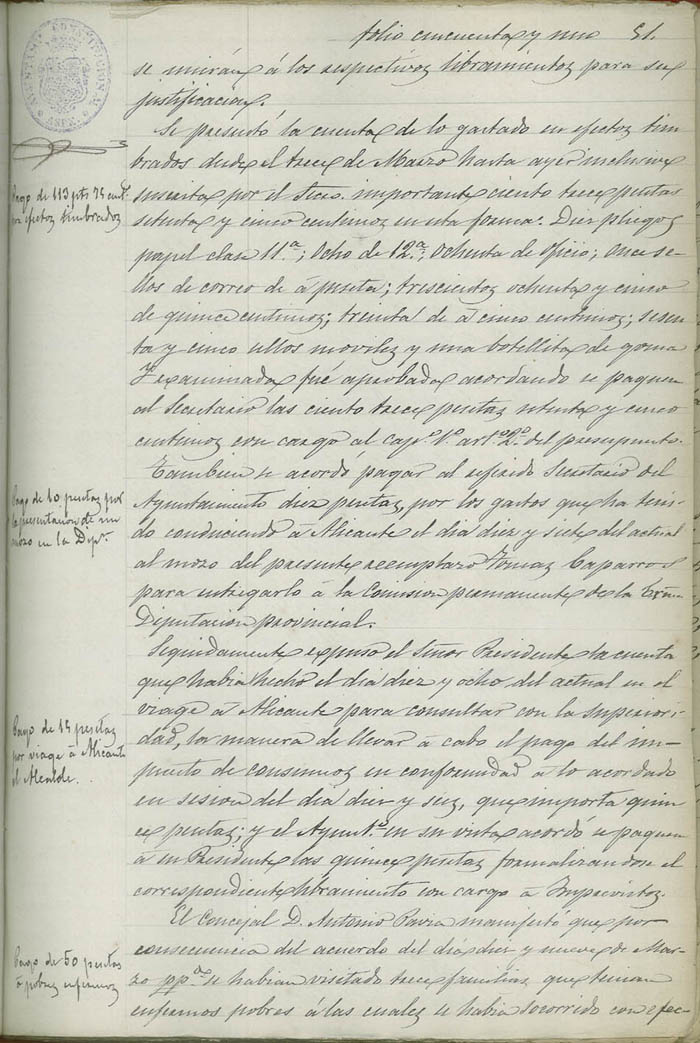 folio cincuenta y uno 51.
AYUNTAMIENTO CONSTITUCIONAL
ASPE.
se unirán á los respectivos libramientos para su
justificacion.
Se presentó la cuenta de lo gastado en efectos tim-
brados desde el trece de Marzo hasta ayer inclusive
Pago de 113 pts 75 cent.
en efectos timbrados
suscrita por el Secr.o importante ciento trece pesetas
setenta y cinco centimos en esta forma. Diez pliegos
papel clase 11.a; Ocho de 12.a; Ochenta de oficio; once se-
llos de correo de á peseta; trescientos ochenta y cinco
de quince centimos; treinta de á cinco centimos; sesen-
ta y cinco sellos moviles y una botellita de goma
Y examinada fué aprobada acordando se paguen
al Secretario las ciento trece pesetas setenta y cinco
centimos con cargo al cap.o 1.o art.o 2.o del presupuesto.
Tambien se acordó pagar al referido Secretario del
Pago de 10 pesetas por
la presentacion de un
mozo en la Dip.n
Ayuntamiento diez pesetas, por los gastos que ha teni-
do conduciendo á Alicante el dia diez y siete del actual
al mozo del presente reemplazo Tomas Caparros
para entregarlo á la Comision permanente de la Exma
Diputacion provincial.
Seguidamente expuso el Señor Presidente la cuenta
que habia hecho el dia diez y ocho del actual en el
Pago de 15 pesetas
por viage á Alicante
el Alcalde.
viage á Alicante para consultar con la superiori-
dad, la manera de llevar á cabo el pago del im-
puesto de consumos en conformidad á lo acordado
en sesion del dia diez y seis, que importa quin-
ce pesetas; y el Ayunt.o en su vista acordó se paguen
á su Presidente las quince pesetas formalizandose el
correspondiente libramiento con cargo á Imprevistos.
El Concejal D. Antonio Pavia manifestó que por
Pago de 50 pesetas
á pobres enfermos
consecuencia del acuerdo del dia diez y nueve de Mar-
zo pp.do se habian visitado trece familias que tenian
enfermos pobres á las cuales se habia socorrido con efec-